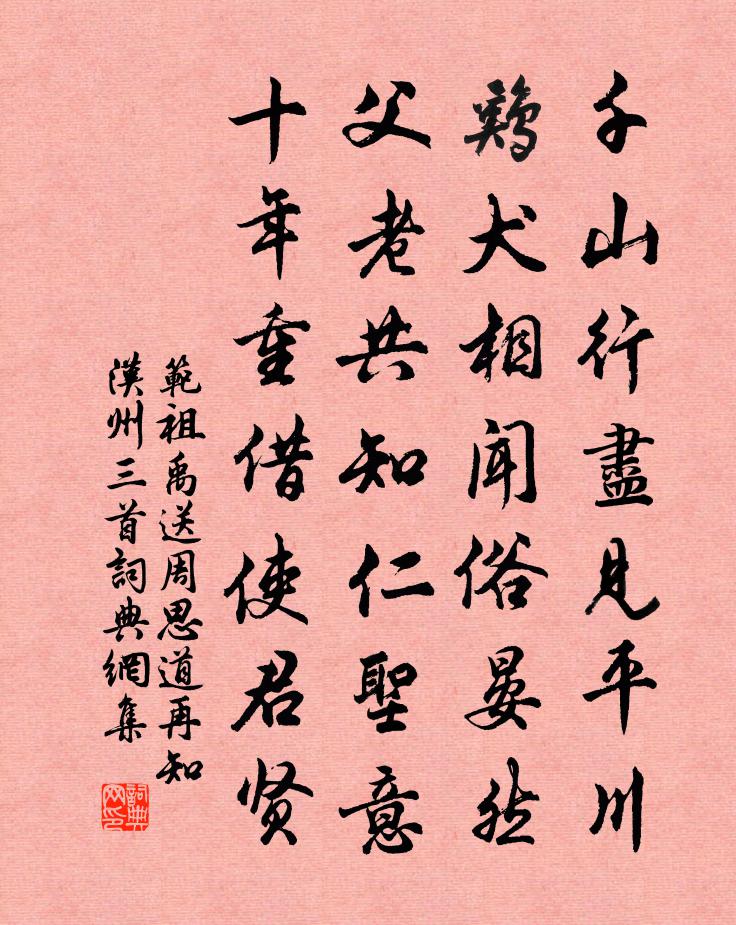 千山行盡見平川
鷄犬相聞俗晏然
父老共知仁聖意
十年重借使君贤
範祖禹送周思道再知
漢州三首詞典網集
詞典
网印